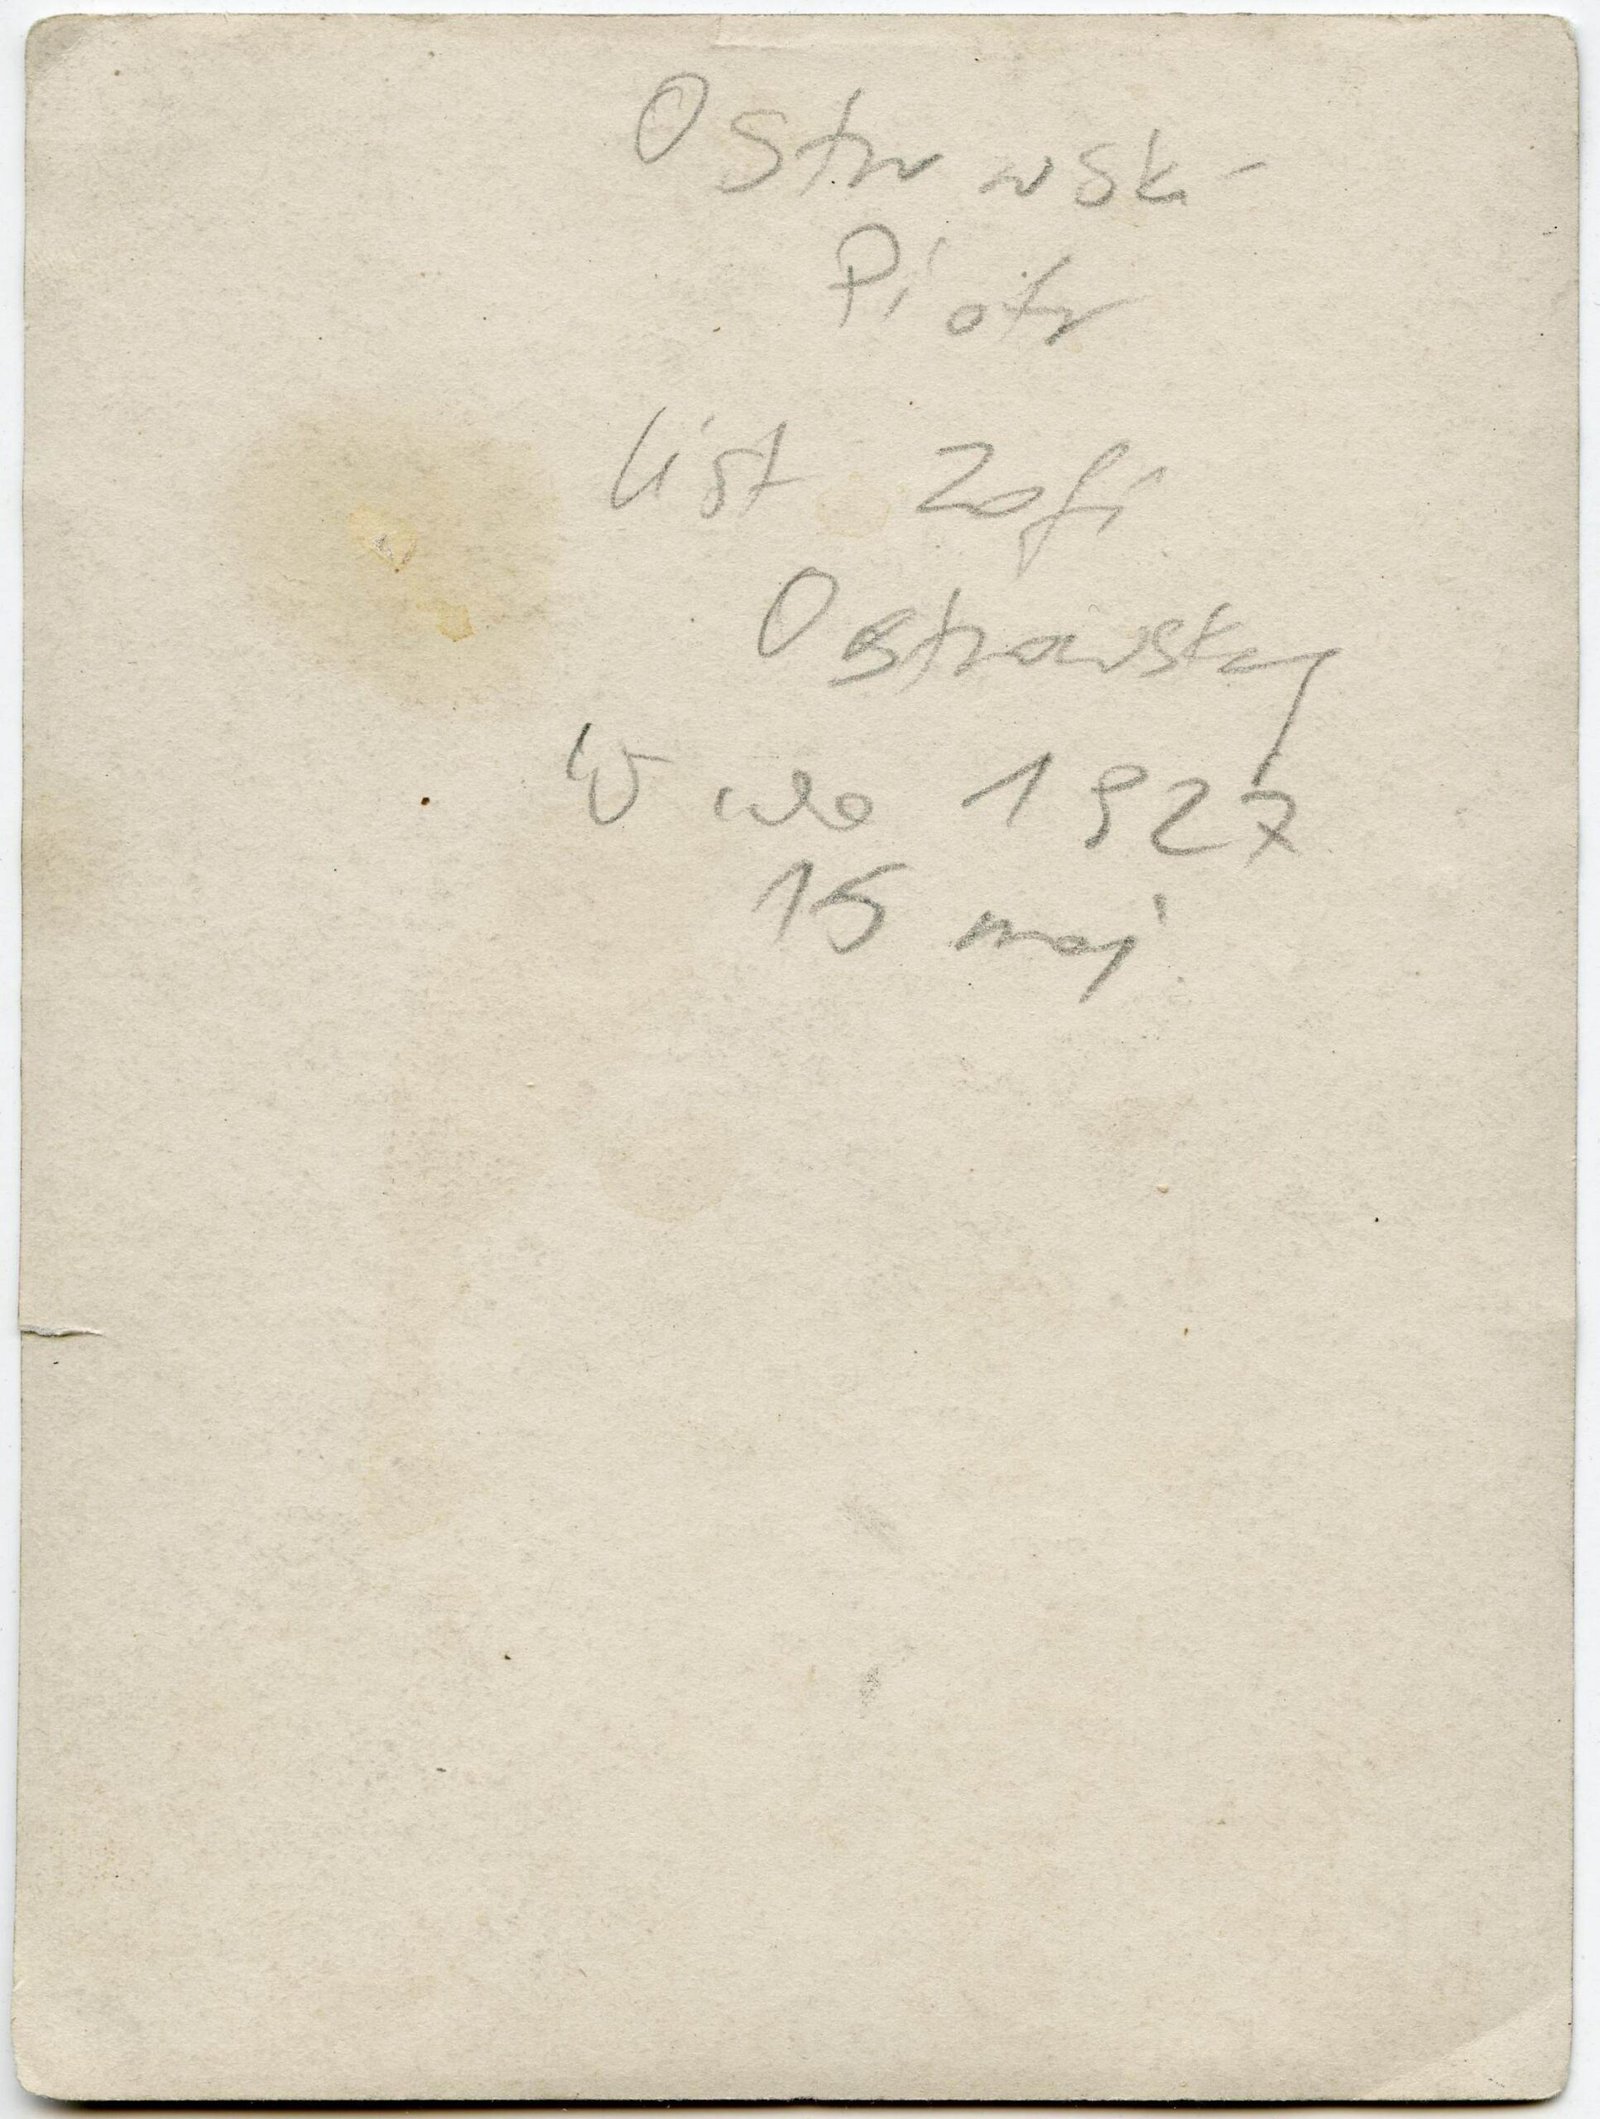 Ostrowski
Piotr
list Zofi
Ostrowskiej
1927
15 maj